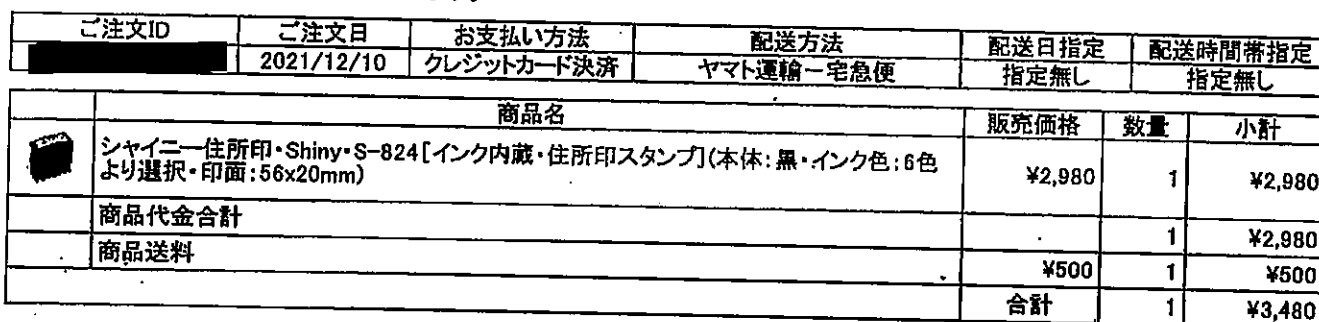 ご注文ID ご注文日 お支払い方法 配送方法 配送日指定 配送時間帯指定
2021/12/10 クレジットカード決済 ヤマト運輸ー宅急便 指定無し 指定無し
商品名 販売価格 数量 小計
シャイニー住所印・Shiny・S-824[インク内蔵・住所印スタンプ](本体:黒・インク色;6色
より選択・印面:56x20mm) ¥2,980 1 ¥2,980
商品代金合計 1 ¥2,980
商品送料 ¥500 1 ¥500
合計 1 ¥3,480